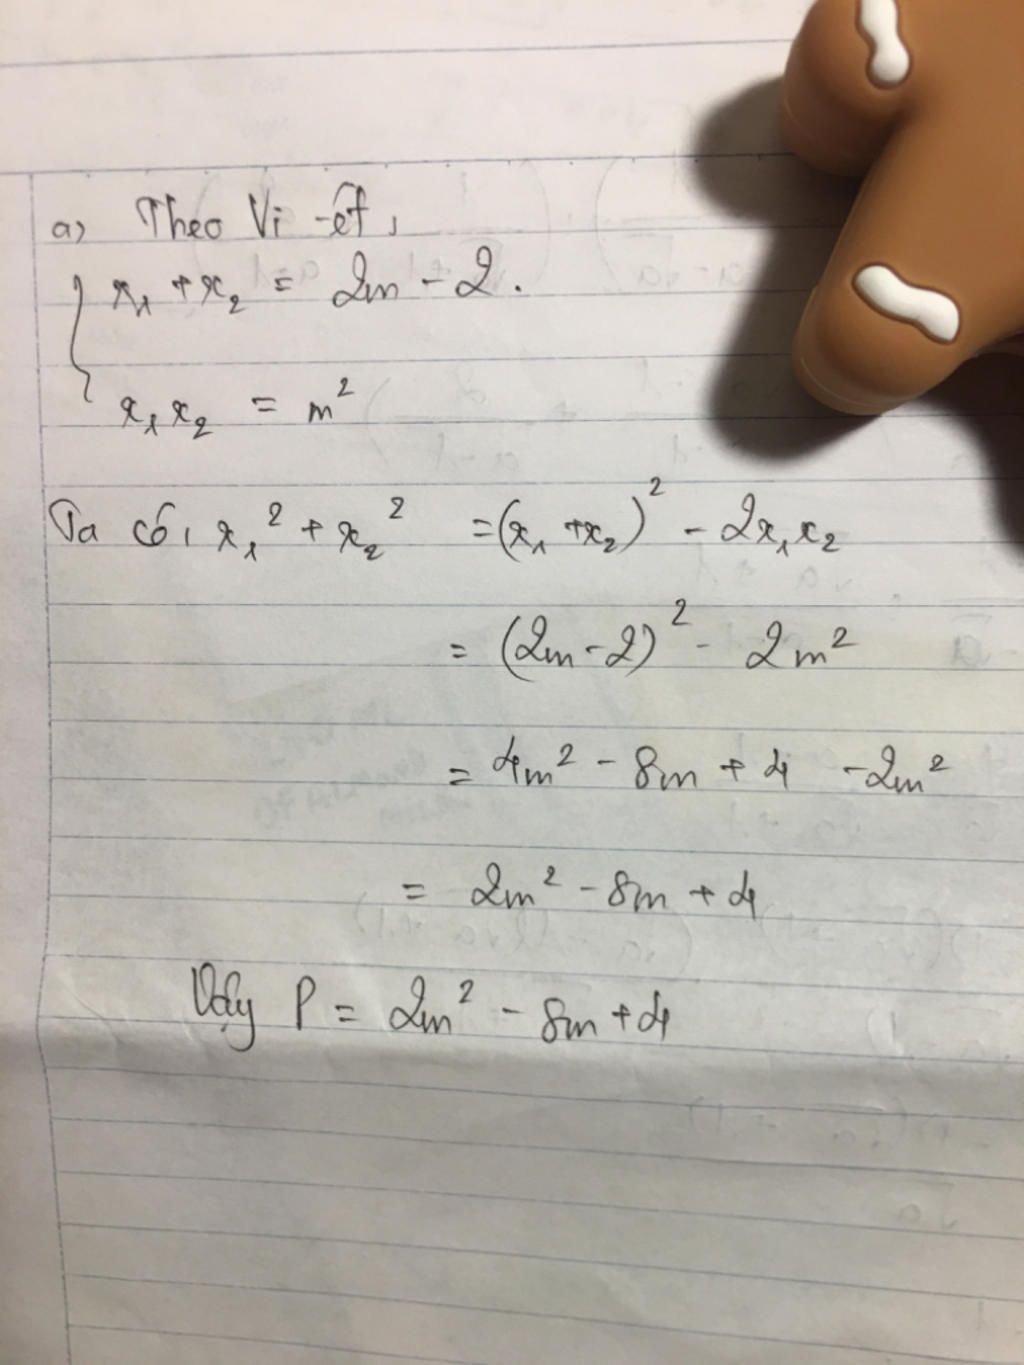 a) Theo Vi-ét,
x₁ + x₂ = 2m - 2.
x₁x₂ = m²
Ta có, x₁² + x₂² = (x₁ + x₂)² - 2x₁x₂
= (2m - 2)² - 2m²
= 4m² - 8m + 4 - 2m²
= 2m² - 8m + 4
Vậy P = 2m² - 8m + 4